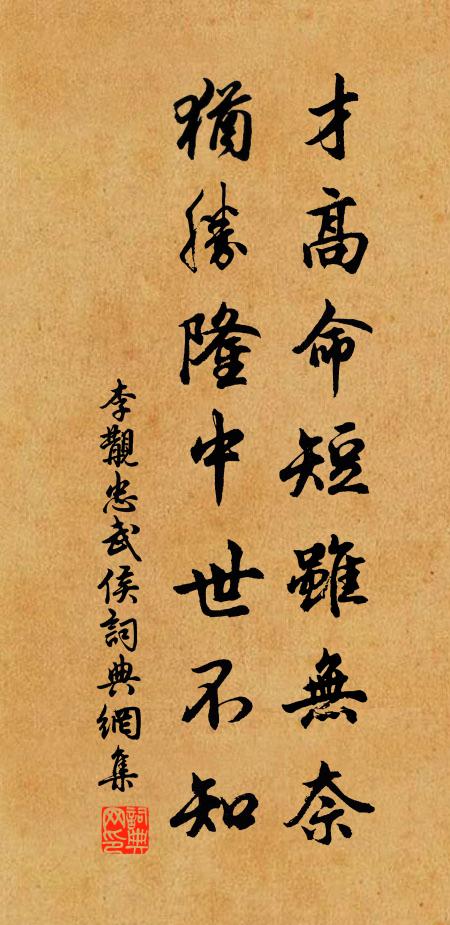 才高命短雖無奈
猶勝隆中世不知
李觀忠武侯詞典網集
詞典网印